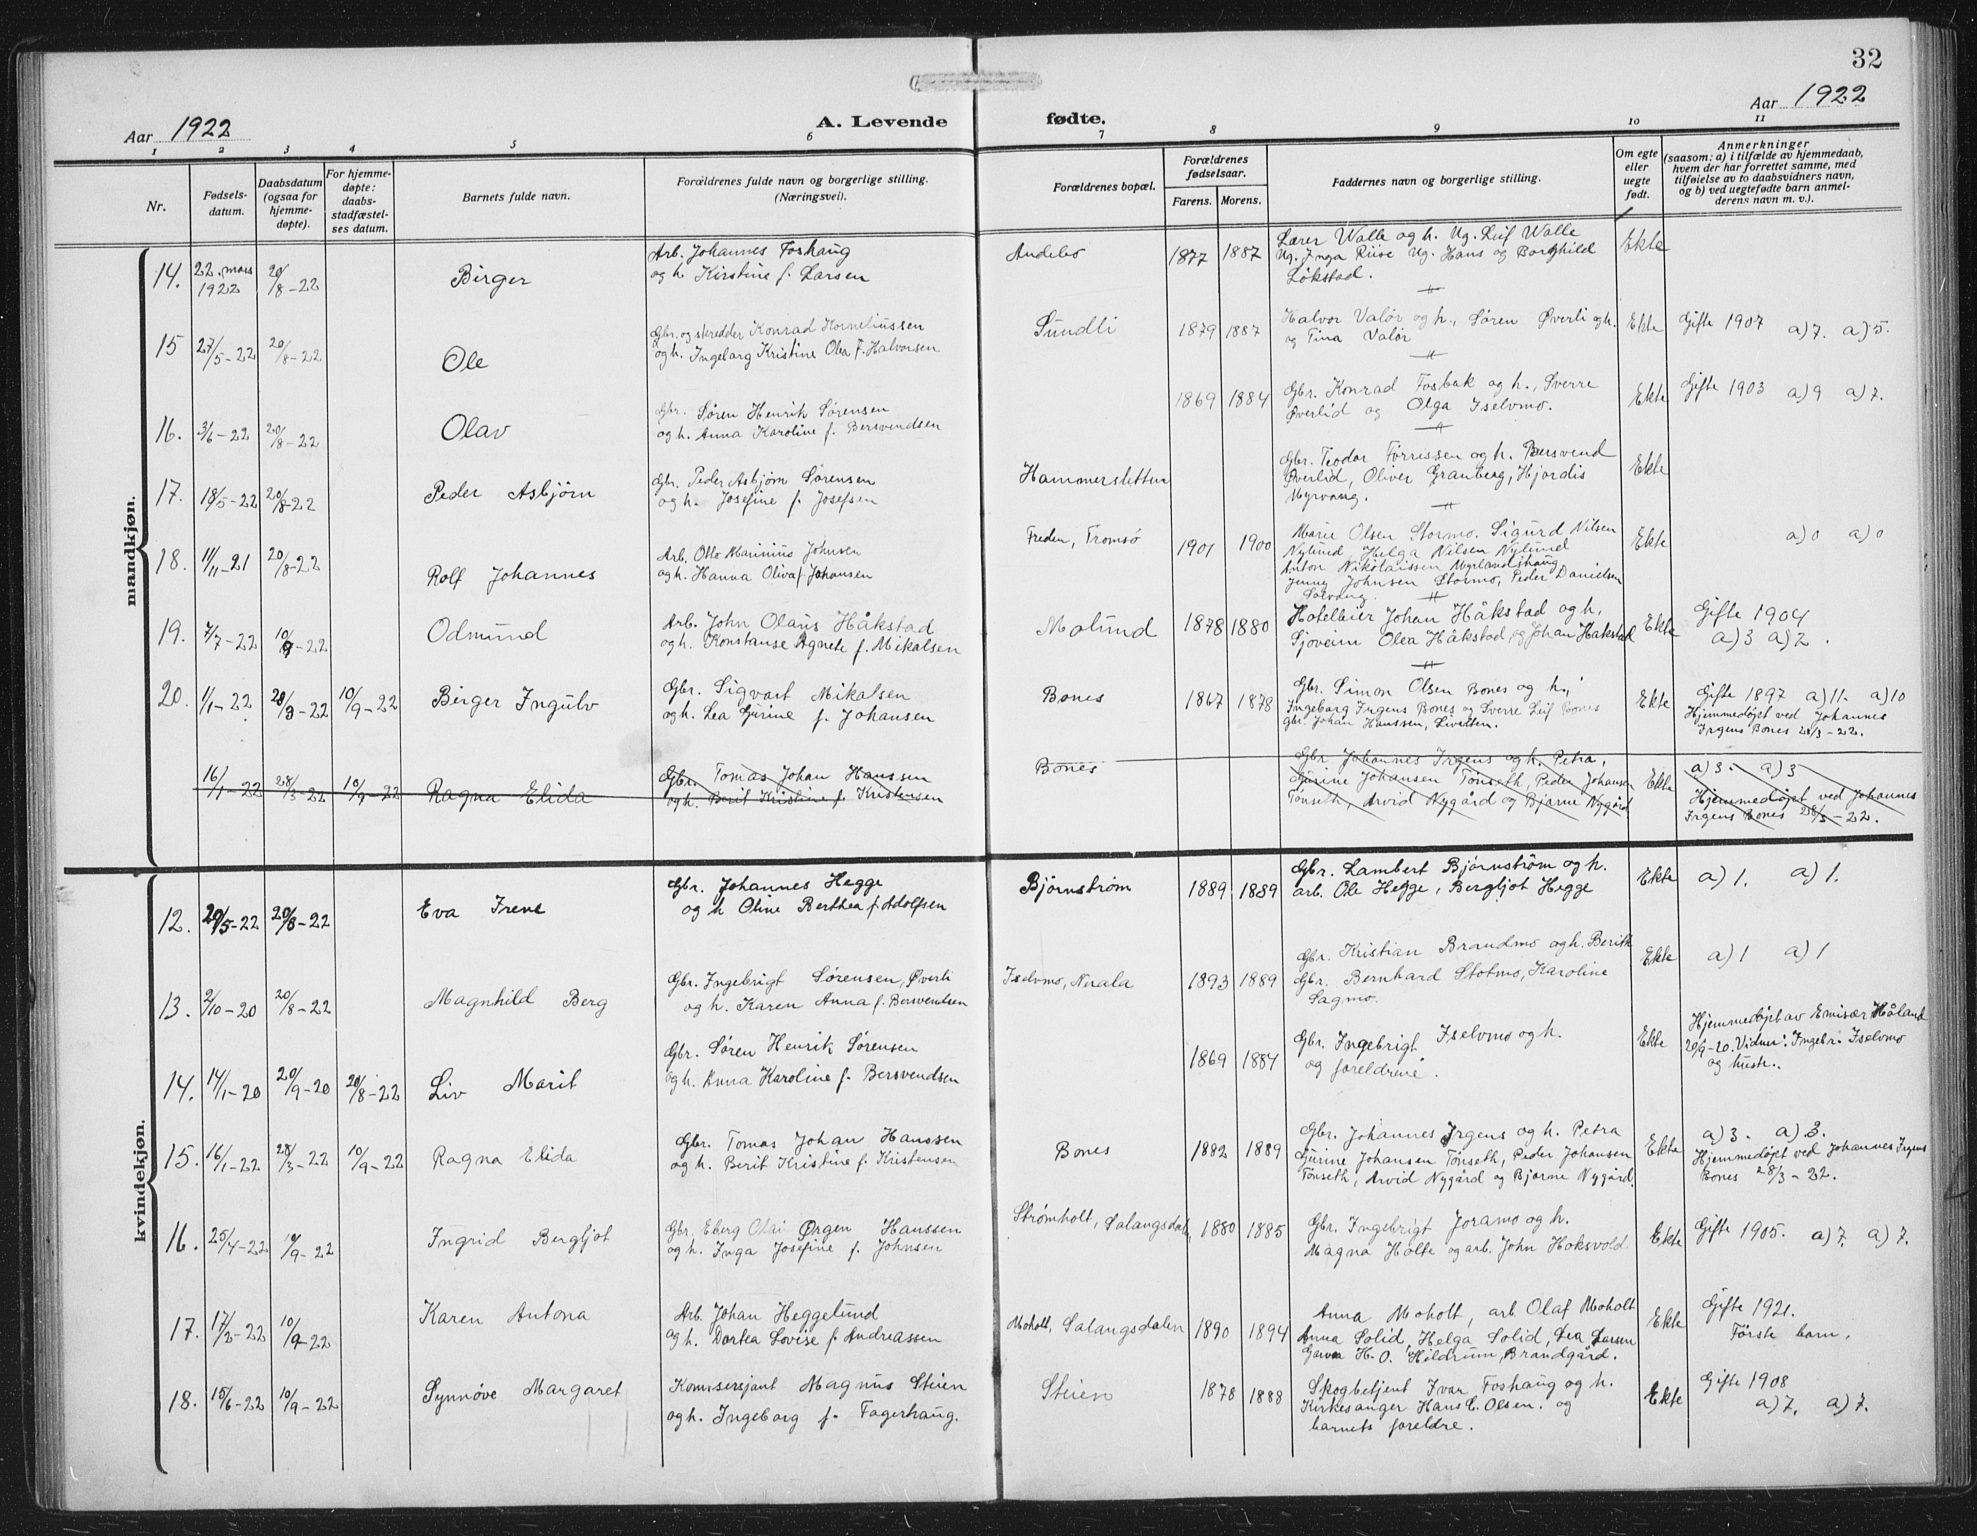 32
Aar 1922
A. Levende fødte.
Aar 1922
1 2 3 4 5 6 7 8 9 10 11
Nr.
Fødsels-
datum.
Daabsdatum
(ogsaa for
hjemme-
døpte).
For hjemme-
døpte:
daabs-
stadfæstel-
ses datum.
Barnets fulde navn.
Forældrenes fulde navn og borgerlige stilling.
(Næringsvei).
Forældrenes bopæl.
Forældrenes
fødselsaar.
Farens. Morens.
Faddernes navn og borgerlige stilling.
Om egte
eller
uegte
født.
Anmerkninger
(saasom: a) i tilfælde av hjemmedaab,
hvem der har forrettet samme, med
tilføielse av to daabsvidners navn,
og b) ved uegtefødte barn anmel-
derens navn m. v.).
mandkjøn.
14. 22. mars 1922 20/8-22 Birger
Arb. Johannes Foshaug
og h. Kirstine f. Larsen
Andebo 1877 1887
Lærer Walle og h. Ug. Leif Walle
Ug. Inga Riise Ug. Hans og Borghild
Løkstad.
Ekte
15 27/5-22 20/8-22 Ole
Gbr. og skredder Konrad Korneliussen
og h. Ingeborg Kristine Olea f. Halvorsen
Sundli 1879 1887
Halvor Valør og h., Søren Øverli og h.
og Tina Valør
Ekte Gifte 1907 a) 7. a) 5.
16. 3/6-22 20/8-22 Olav
Gbr. Søren Henrik Sørensen
og h. Anna Karoline f. Bersvendsen
1869 1884
Gbr. Konrad Fosbak og h., Sverre
Øverlid og Olga Iselvmo.
Ekte Gifte 1903 a) 9 a) 7.
17. 18/5-22 20/8-22 Peder Asbjørn
Gbr. Peder Asbjørn Sørensen
og h. Josefine f. Josefsen
Hammersletten
Gbr. Teodor Tørrissen og h. Bersvend
Øverlid, Oliver Granberg, Hjørdis
Myrvang.
Ekte
18. 11/11-21 20/8-22 Rolf Johannes
Arb. Otto Marinius Johnsen
og h. Hanna Oliva f. Johansen
Freden, Tromsø 1901 1900
Marie Olsen Stormo. Sigurd Nilsen
Nylund, Helga Nilsen Nylund
Anton Nikolaissen Myrlandshaug
Jenny Johnsen Stormo, Peder Danielsen
Sørvang.
Ekte a) 0 a) 0
19. 7/7-22 10/9-22 Odmund
Arb. John Olaus Håkstad
og h. Konstanse Agnete f. Mikalsen
Molund 1878 1880
Hotelleier Johan Håkstad og h.
Sjøveien Olea Håkstad, og Johan Håkstad
Ekte Gifte 1904
a) 3 a) 2.
20. 1/1-22 28/3-22 10/9-22 Birger Ingulv
Gbr. Sigvart Mikalsen
og h. Lea Gurine f. Johansen
Bones 1867 1878
Gbr. Simon Olsen Bones og h.,
Ingeborg Irgens Bones og Sverre Leif Bones
gbr. Johan Hanssen, Liveten.
Ekte Gifte 1897 a) 11. a) 10
Hjemmedøpt ved Johannes
Irgens Bones 28/3-22.
16/1-22 28/3-22 10/9-22 Ragna Elida
Gbr. Tomas Johan Hanssen
og h. Berit Kristine f. Kristensen
Bones
Gbr. Johannes Irgens og h. Petra,
Gurine Johansen Tønseth, Peder Johansen
Tønseth, Arvid Nygård og Bjarne Nygård.
Ekte a) 3. a) 3
Hjemmedøpt ved Johannes
Irgens Bones 28/3-22.
kvindekjøn.
12. 20/5-22 20/8-22 Eva Irene
Gbr. Johannes Hegge
og h Oline Berthea f. Adolfsen
Bjørnstrøm 1889 1889
Gbr. Lambert Bjørnstrøm og h.
arb. Ole Hegge, Bergljot Hegge
Ekte a) 1. a) 1.
13. 2/10-20 20/8-22 Magnhild Berg
Gbr. Ingebrigt Sørensen, Øverli
og h. Karen Anna f. Bersvendsen
Iselvmo, Nerala 1893 1889
Gbr. Kristian Brandmo og h. Berith
Gbr. Bernhard Stormo, Karoline
Sagmo.
Ekte a) 1 a) 1
14. 14/1-20 20/9-20 20/8-22 Liv Marit
Gbr. Søren Henrik Sørensen
og h. Anna Karoline f. Bersvendsen
1869 1884
Gbr. Ingebrigt Iselvmo og h.
og foreldrene.
Ekte Hjemmedøpt av Emisær Håland
20/9-20. Vidner: Ingebr. Iselvmo
og hustr.
15. 16/1-22 28/3-22 10/9-22 Ragna Elida
Gbr. Tomas Johan Hanssen
og h. Berit Kristine f. Kristensen
Bones 1882 1889
Gbr. Johannes Irgens og h. Petra
Gurine Johansen Tønseth, Peder Johansen
Tønseth, Arvid Nygård og Bjarne Nygård.
Ekte a) 3. a) 3.
Hjemmedøpt ved Johannes Irgens
Bones 28/3-22.
16. 25/4-22 10/9-22 Ingrid Bergljot
Gbr. Eberg Olai Ørgen Hanssen
og h. Inga Josefine f. Johnsen
Strømholt, Salangsdal. 1880 1885
Gbr. Ingebrigt Joramo og h.
Magna Holte og arb. John Hoksvold
Ekte Gifte 1905. a) 7. a) 7.
17. 17/2-22 10/9-22 Karen Antona
Arb. Johan Heggelund
og h. Dortea Lovise f. Andreassen
Moholt, Salangsdalen 1890 1894
Anna Moholt, arb. Olaf Moholt
Anna Solid, Helga Solid, Lea Larsen
H. O. Hildrum, Brandgård.
Ekte Gifte 1921.
Første barn.
18. 15/6-22 10/9-22 Synnøve Margaret
Komisersjant Magnus Steien
og h. Ingeborg f. Fagerhaug.
Steien 1878 1888
Skogbetjent Ivar Foshaug og h.
Kirkesanger Hans C. Olsen. og
barnets foreldre.
Ekte Gifte 1908
a) 7. a) 7.